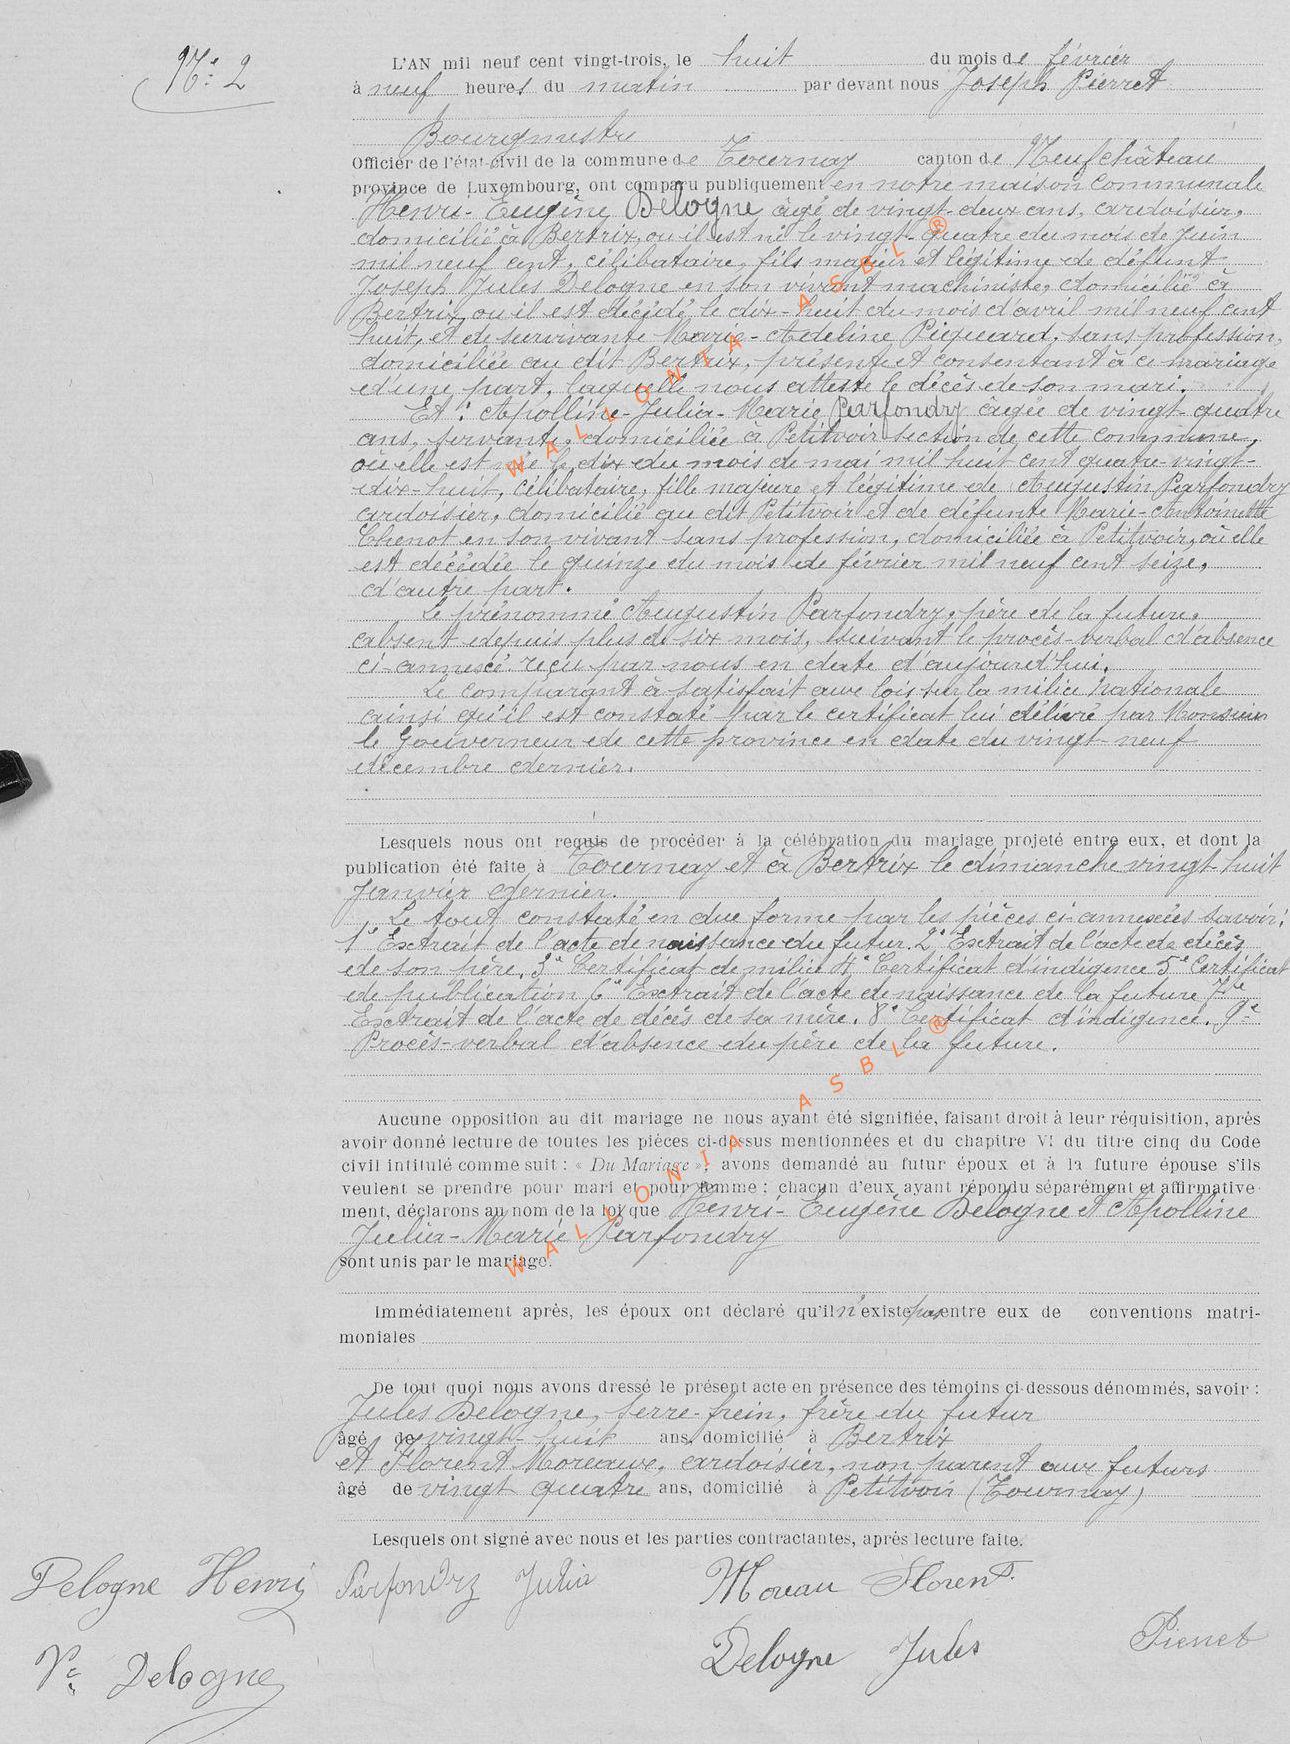 N° 2
L'AN mil neuf cent vingt-trois, le huit du mois de février
à neuf heures du matin par devant nous Joseph Pierret
Bourgmestre
Officier de l'état-civil de la commune de Tournay canton de Neufchâteau
province de Luxembourg, ont comparu publiquement en notre maison communale
Henri-Eugène Delogne âgé de vingt-deux ans, ardoisier,
domicilié à Bertrix, où il est né le vingt-quatre du mois de Juin
mil neuf cent, célibataire, fils majeur et légitime de défunt
Joseph Jules Delogne en son vivant machiniste, domicilié à
Bertrix, où il est décédé le dix-huit du mois d'avril mil neuf cent
huit, et de survivante Marie-Adeline Picquard, sans profession,
domiciliée au dit Bertrix, présente et consentant à ce mariage
d'une part, laquelle nous atteste le décès de son mari.
Et : Apolline-Julia-Marie Parfondry âgée de vingt-quatre
ans, servante, domiciliée à Petitvoir section de cette commune,
où elle est née le dix du mois de mai mil huit cent quatre-vingt-
dix-huit, célibataire, fille majeure et légitime de Augustin Parfondry
ardoisier, domicilié au dit Petitvoir et de défunte Marie-Antoinette
Thenot en son vivant sans profession, domiciliée à Petitvoir, où elle
est décédée le quinze du mois de février mil neuf cent seize,
d'autre part.
Le prénommé Augustin Parfondry, père de la future,
absent depuis plus de six mois, suivant le procès-verbal d'absence
ci-annexé reçu par nous en date d'aujourd'hui.
Le comparant à satisfait aux lois sur la milice nationale
ainsi qu'il est constaté par le certificat lui délivré par Monsieur
le Gouverneur de cette province en date du vingt-neuf
décembre dernier.
Lesquels nous ont requis de procéder à la célébration du mariage projeté entre eux, et dont la
publication été faite à Tournay et à Bertrix le dimanche vingt-huit
Janvier dernier.
Le tout constaté en due forme par les pièces ci-annexées savoir:
1° Extrait de l'acte de naissance du futur. 2° Extrait de l'acte de décès
de son père. 3° Certificat de milice 4° Certificat d'indigence 5° Certificat
de publication 6° Extrait de l'acte de naissance de la future 7°
Extrait de l'acte de décès de sa mère. 8° Certificat d'indigence. 9°
Procès-verbal d'absence du père de la future.
Aucune opposition au dit mariage ne nous ayant été signifiée, faisant droit à leur réquisition, après
avoir donné lecture de toutes les pièces ci-dessus mentionnées et du chapitre VI du titre cinq du Code
civil intitulé comme suit : « Du Mariage », avons demandé au futur époux et à la future épouse s'ils
veulent se prendre pour mari et pour femme ; chacun d'eux ayant répondu séparément et affirmative-
ment, déclarons au nom de la loi que Henri-Eugène Delogne et Apolline
Julia-Marie Parfondry
sont unis par le mariage.
Immédiatement après, les époux ont déclaré qu'il n'existe pas entre eux de conventions matri-
moniales
De tout quoi nous avons dressé le présent acte en présence des témoins ci-dessous dénommés, savoir :
Jules Delogne, serre-frein, frère du futur
âgé de vingt-huit ans, domicilié à Bertrix
et Florent Moreaux, ardoisier, non parent aux futurs
âgé de vingt quatre ans, domicilié à Petitvoir (Tournay)
Lesquels ont signé avec nous et les parties contractantes, après lecture faite.
Delogne Henri Parfondry Julia Moreau Florent
Ve Delogne Delogne Jules Pierret
WALLONIA ASBL ®
WALLONIA ASBL ®